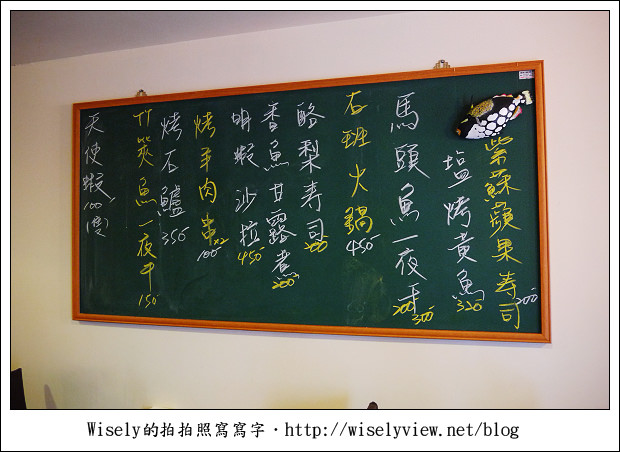 紫蘇蘋果壽司 200
塩烤黃魚 320
馬頭魚一夜干 200 300
石班火鍋 450
酪梨寿司 200
香魚甘露煮 200
明蝦沙拉 450
烤羊肉串x2 100
烤石鱸 350
竹筴魚一夜干 150
天使蝦 100
Wisely的拍拍照寫寫字・http://wiselyview.net/blog